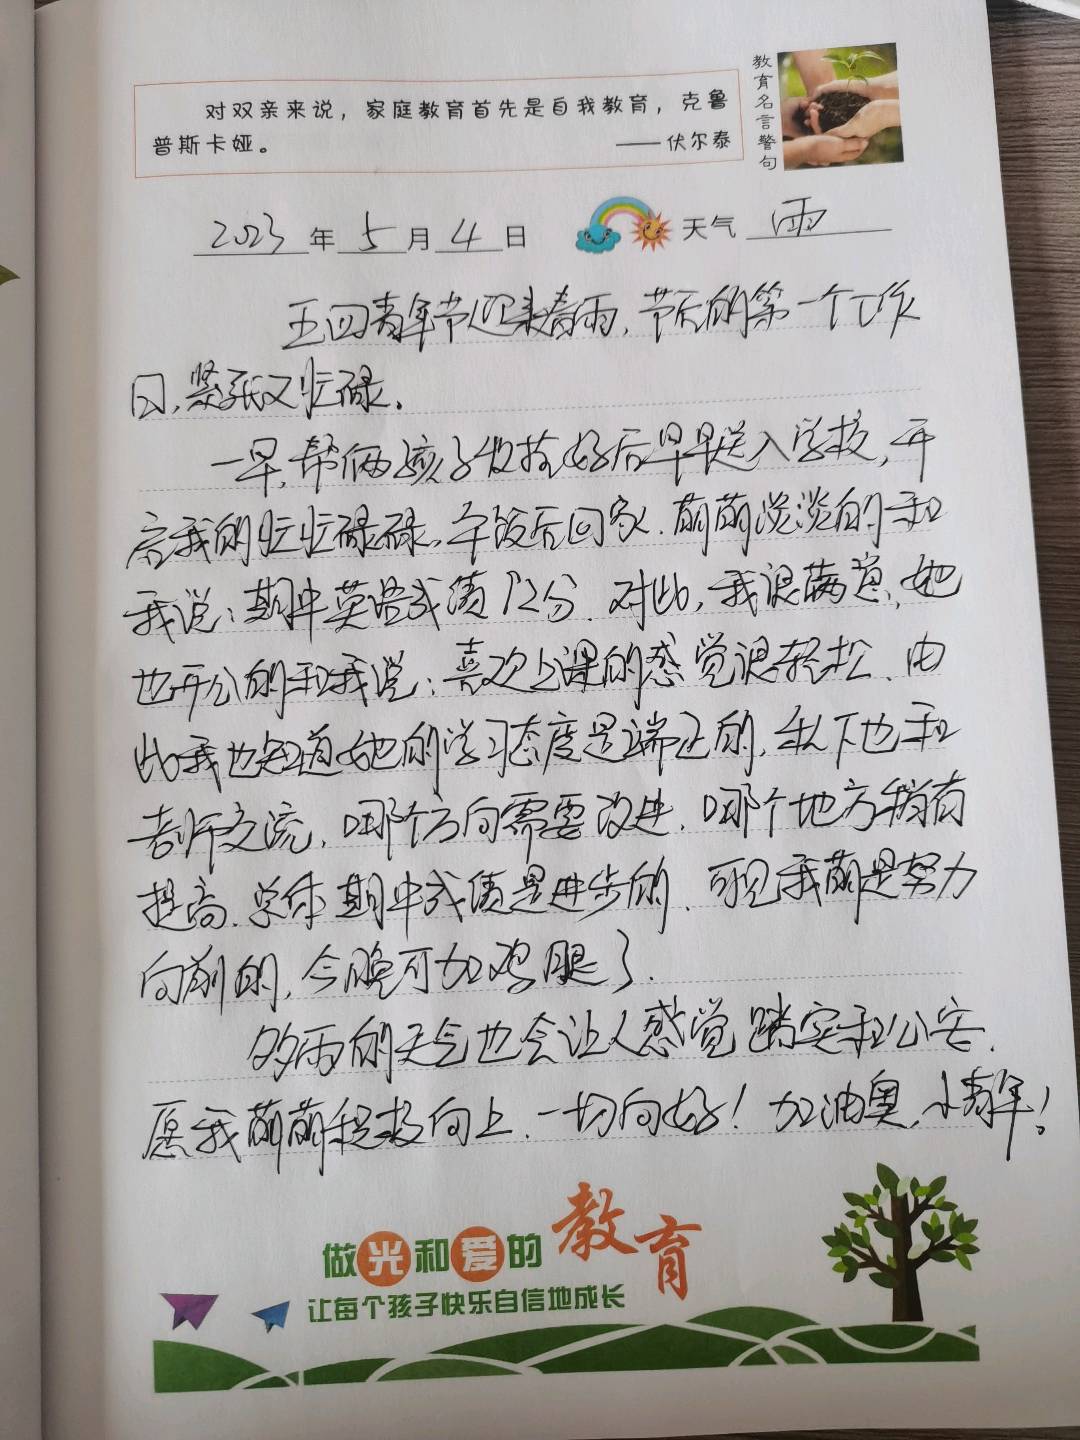 对双亲来说，家庭教育首先是自我教育，克鲁
普斯卡娅。 ——伏尔泰
教育名言警句
2023年5月4日 天气 雨
五四青年节迎来春雨,节后的第一个工作
日,紧张又忙碌。
一早,帮俩孩子收拾好后早早送入学校,开
启我的忙忙碌碌。午饭后回家.萌萌淡淡的和
我说:期中英语成绩72分.对此,我很满意,她
也开心的和我说:喜欢上课的感觉很轻松.由
此我也知道她的学习态度是端正的,私下也和
老师交流,哪个方向需要改进.哪个地方稍有
提高.总体期中成绩是进步的.可见我萌是努力
向前的,今晚可加鸡腿了.
多雨的天气也会让人感觉踏实和心安.
愿我萌萌积极向上.一切向好!加油奥,小青年!
做光和爱的教育
让每个孩子快乐自信地成长